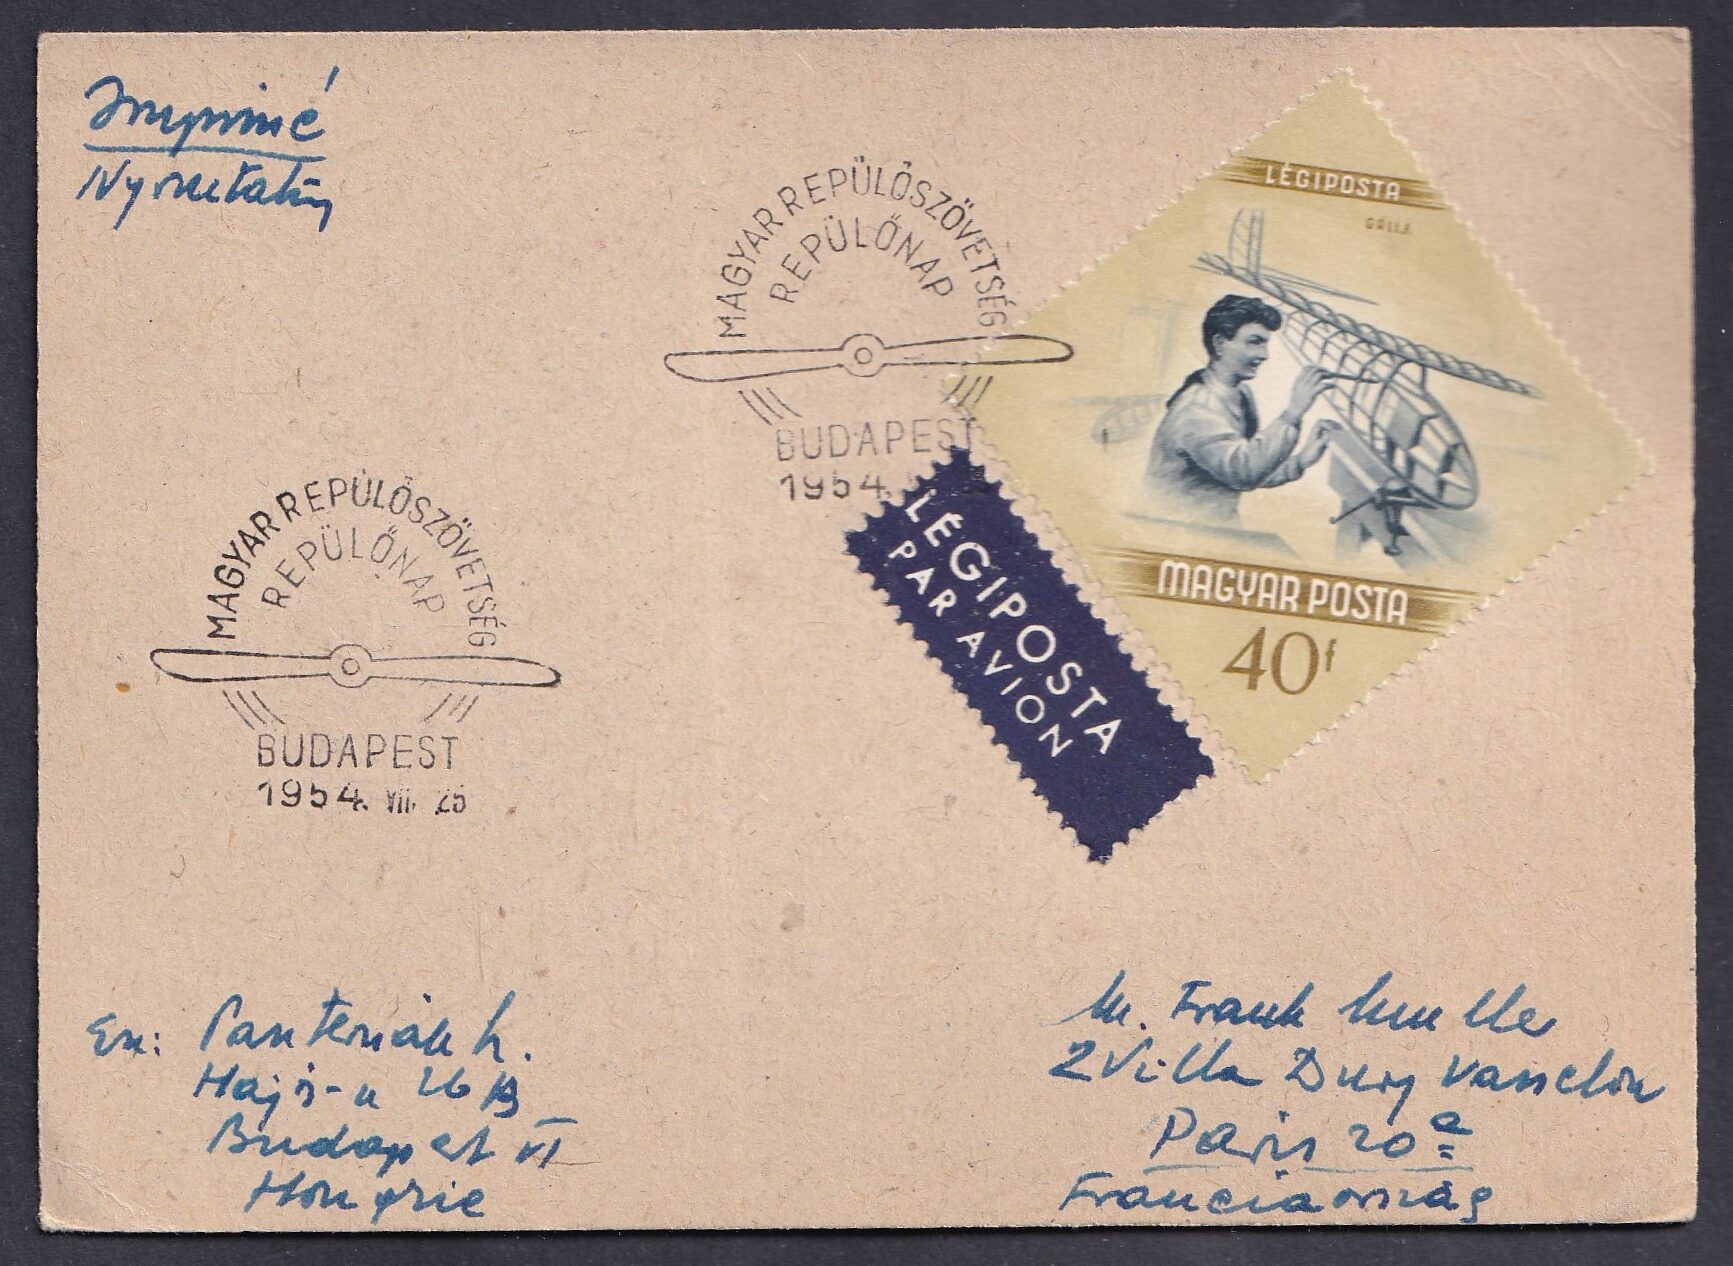 Imprimé
Nyomtatvány
MAGYAR REPÜLŐSZÖVETSÉG
REPÜLŐNAP
BUDAPEST
1954.
LÉGIPOSTA
GÁL F.
MAGYAR POSTA
40f
LÉGIPOSTA
PAR AVION
MAGYAR REPÜLŐSZÖVETSÉG
REPÜLŐNAP
BUDAPEST
1954. VII. 25
Hajós-u 26 B
Budapest VI
Hongrie
M. Frank Muller
2 Villa Dury Vasselon
Paris 20e
Franciaország